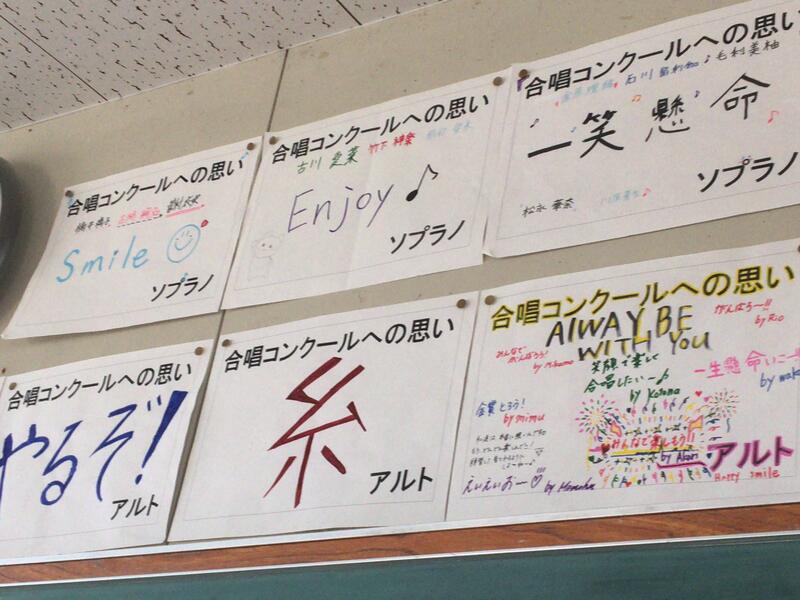 合唱コンクールへの思い
Smile
ソプラノ
合唱コンクールへの思い
古川 愛菜 竹下 神楽
Enjoy♪
ソプラノ
合唱コンクールへの思い
毛利美柚
一笑懸命
ソプラノ
松永 華奈
合唱コンクールへの思い
やるぞ!
アルト
合唱コンクールへの思い
糸
アルト
合唱コンクールへの思い
AlWAY BE
WITH You
がんばろ〜!!
by Rio
みんなで
がんばろう!
笑顔で楽しく
合唱したいー♪
by Kotona
一生懸命いこー
by wak
金賞とろう!
by mimu
みんなで楽しもう!!
by Akari
アルト
えいえいおー♡
Happy smile